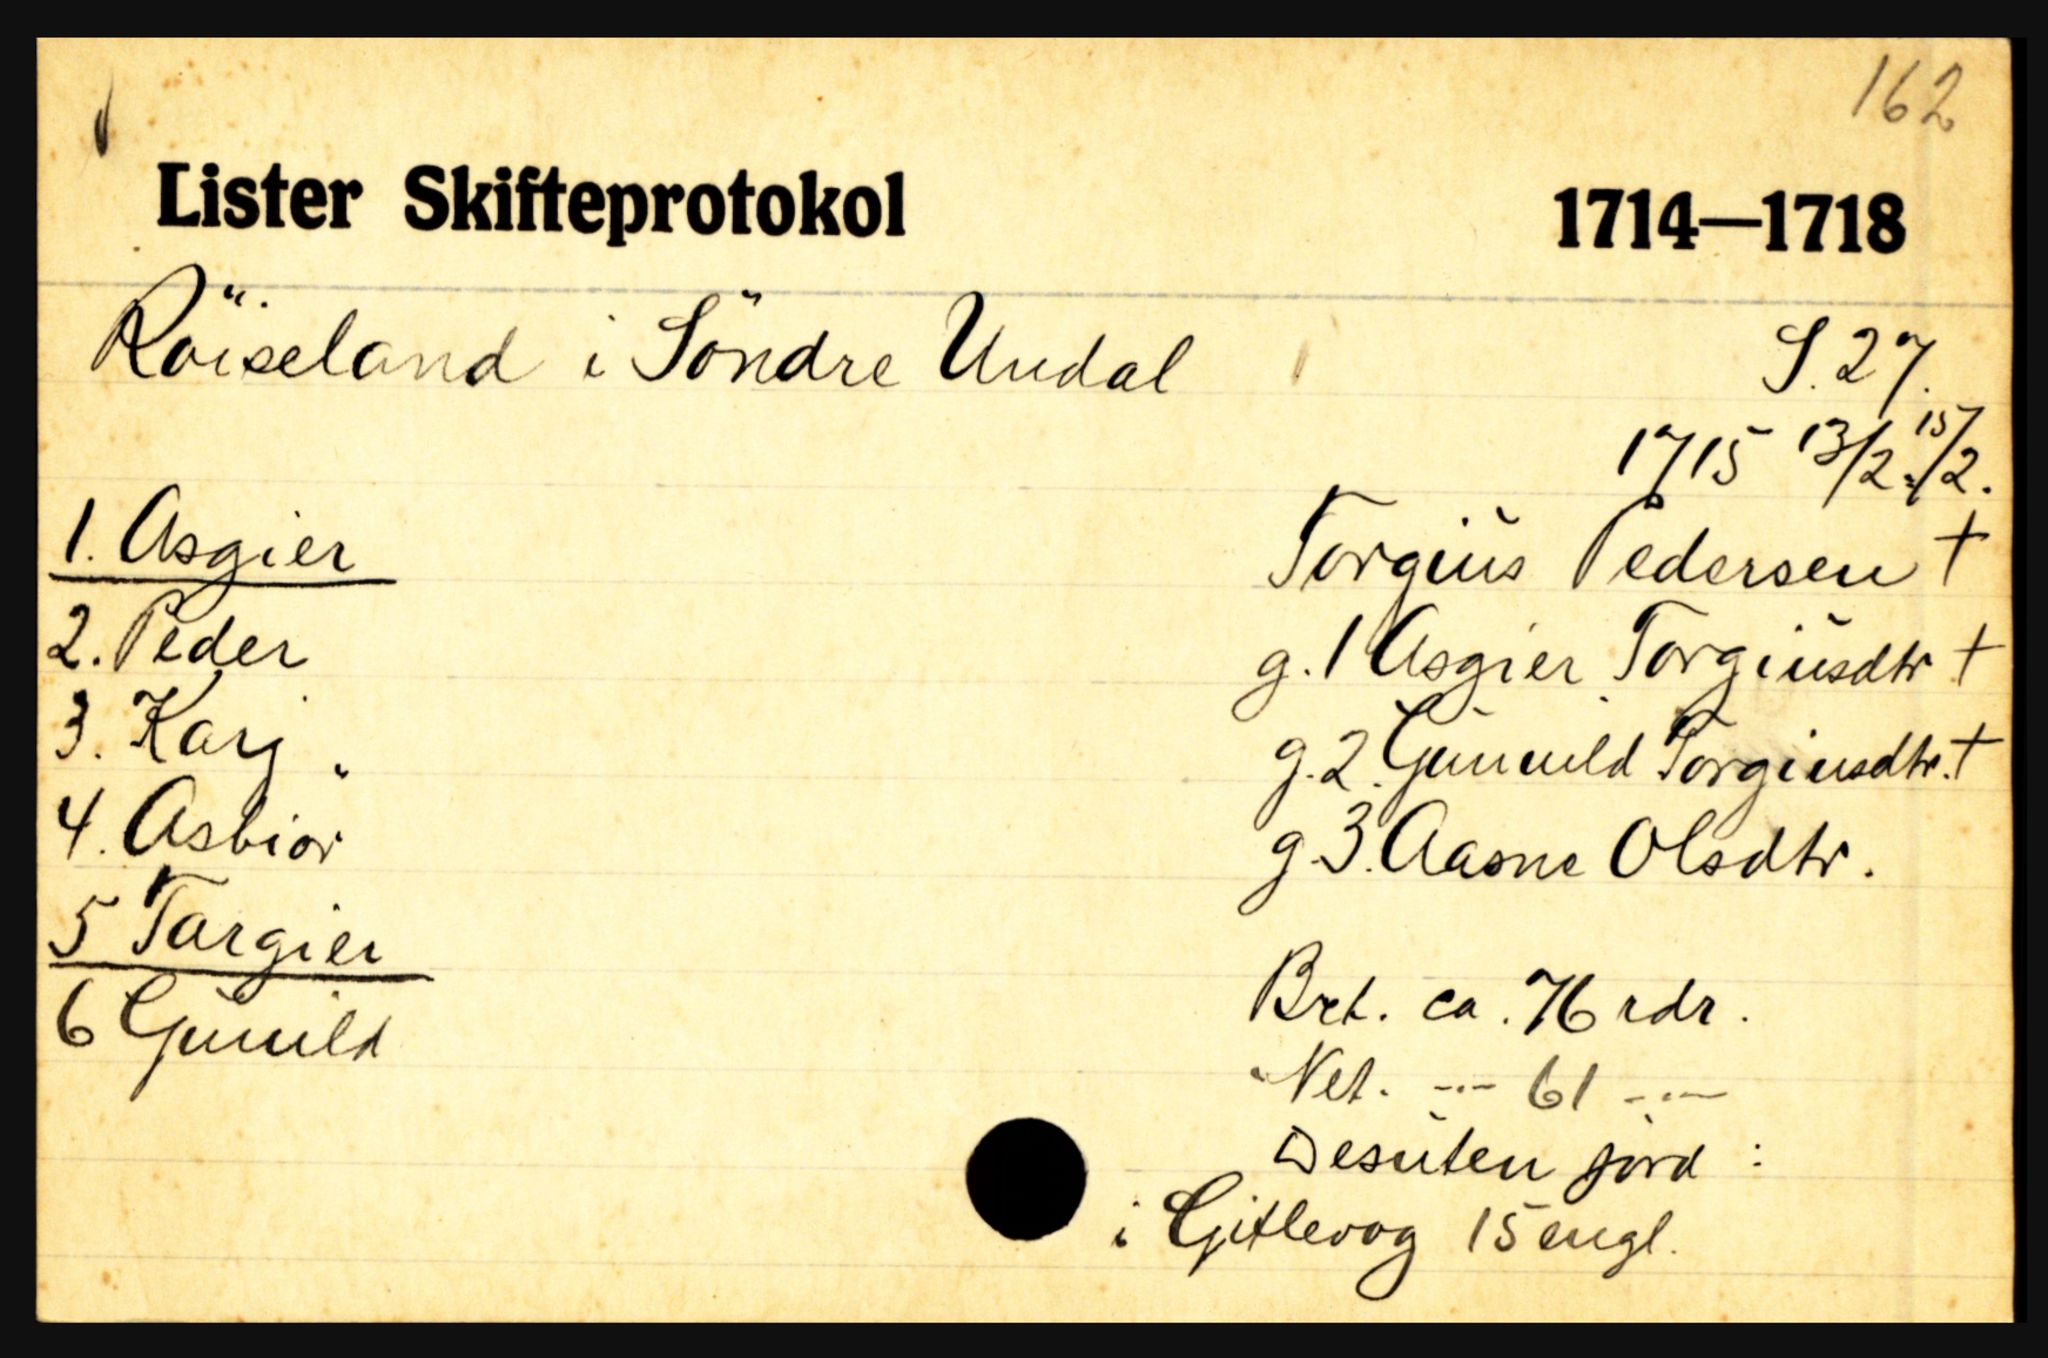 162
Lister Skifteprotokol 1714—1718
Röiseland i Söndre Undal S. 27.
1715 13/2. 15/2.
1. Asgier
Torgiŭs Pedersen +
2. Peder
g. 1 Asgier Torgiŭsdtr +
3. Karj
g. 2. Gŭnuild Torgiusdtr. +
4. Asbiör
g 3. Aasne Olsdtr.
5 Targier
6 Gŭnild
Brt. ca. 76 rdr.
Net. -"- 61 -"-
Desŭten jord :
i Gitlevog 15 engl.